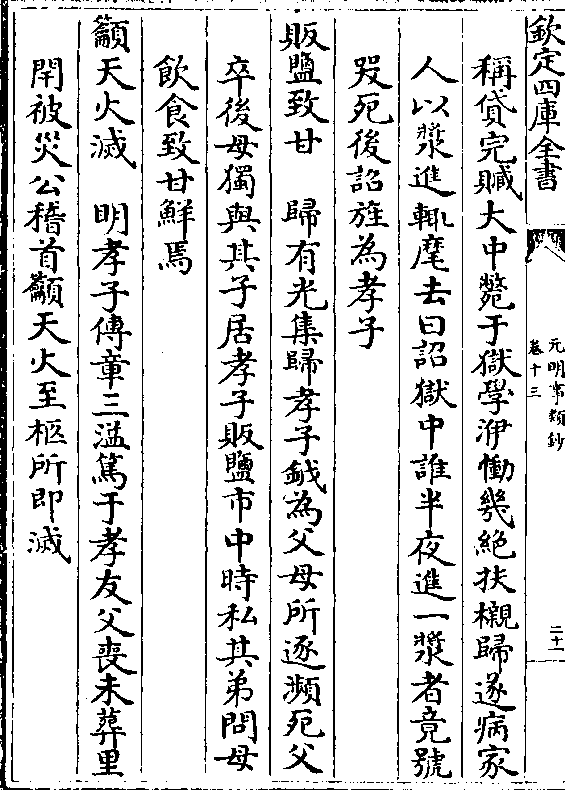 欽定四庫全書
元明事類鈔
卷十三
二十一
稱貸完贓大中斃于獄學洢慟幾絶扶櫬歸遂病家
人以漿進輒麾去曰詔獄中誰半夜進一漿者竟號
哭死後詔旌為孝子
販鹽致甘　歸有光集歸孝子鉞為父母所逐瀕死父
卒後母獨與其子居孝子販鹽市中時私其弟問母
飲食致甘鮮焉
籲天火滅　明孝子傳章三溢篤于孝友父喪未葬里
閈被災公稽首籲天火至柩所即滅